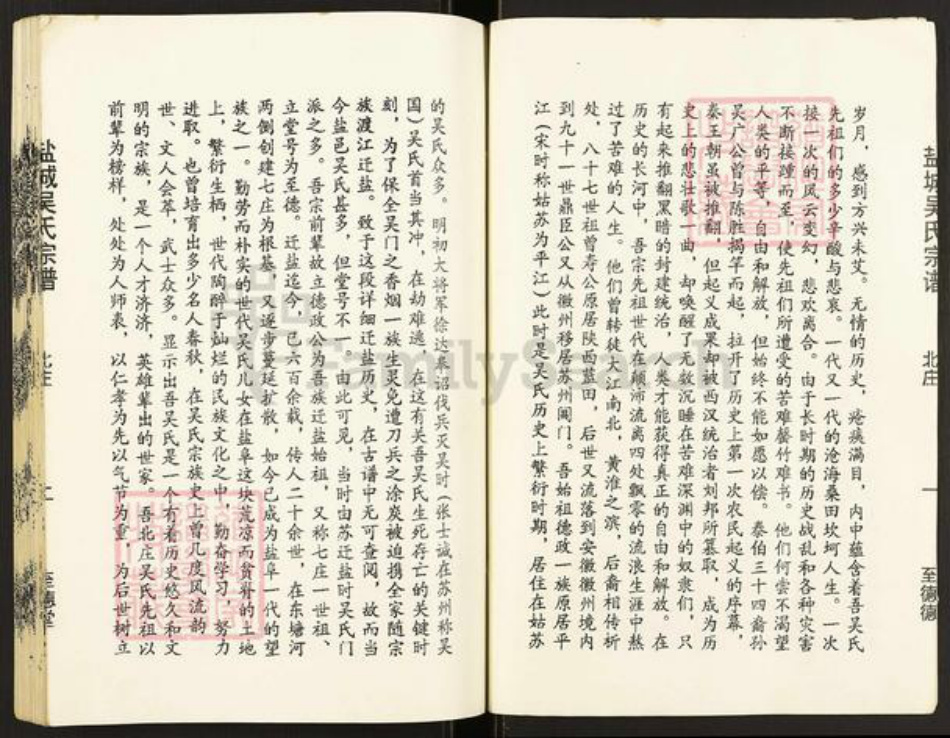 盐城吴氏宗谱 北庄 一 至德
岁月，感到方兴未艾。无情的历史，疮痍满目，内中蕴含着吾吴氏
先祖们的多少辛酸与悲哀。一代又一代的沧海桑田坎坷人生。一次
接一次的风云变幻，悲欢离合。由于长时期的历史战乱和各种灾害
不断接踵而至，使先祖们所遭受的苦难罄竹难书。他们何尝不渴望
人类的平等，自由和解放，但始终不能如愿以偿。泰伯三十四裔孙
吴广公曾与陈胜揭竿而起，拉开了历史上第一次农民起义的序幕，
秦王朝虽被推翻，但起义成果却被西汉统治者刘邦所篡取，成为历
史上的悲壮歌一曲，却唤醒了无数沉睡在苦难深渊中的奴隶们，只
有起来推翻黑暗的封建统治，人类才能获得真正的自由和解放。在
历史的长河中，吾宗先祖世代在颠沛流离四处飘零的流浪生涯中熬
过了苦难的人生。他们曾转徒大江南北，黄淮之滨，后裔相传析
处，八十七世祖曾寿公原居陕西蓝田，后世又流落到安徽徽州境内
到九十一世鼎臣公又从徽州移居苏州阊门。吾始祖德政一族原居平
江（宋时称姑苏为平江）此时是吴氏历史上繁衍时期，居住在姑苏
的吴氏众多。明初大将军徐达奉诏伐兵灭吴时（张士诚在苏州称吴
国）吴氏首当其冲，在劫难逃，在这有关吾吴氏生死存亡的关键时
刻，为了保全吴门之香烟一族生灵免遭刀兵之涂炭被迫携全家随宗
族渡江迁盐。致于这段详细迁盐历史，在古谱中无可查阅，故而当
今盐邑吴氏甚多，但堂号不一，由此可见，当时由苏迁盐时吴氏门
派之多。吾宗前辈故立德政公为吾族迁盐始祖，又称七庄一世祖、
立堂号为至德。迁盐迄今，已六百余载，传人二十余世，在东塘河
两侧创建七庄为根基，又逐步蔓延扩散，如今已成为盐阜一代的望
族之一。勤劳而朴实的世代吴氏儿女在盐阜这块荒凉而贫瘠的土地
上，繁衍生栖，世代陶醉于灿烂的民族文化之中，勤奋学习，努力
进取。也曾培育出多少名人春秋，在吴氏宗族史上曾几度风流韵
世、文人会萃，武士众多。显示出吾吴氏是一个有着历史悠久和文
明的宗族，是一个人才济济，英雄辈出的世家。吾北庄吴氏先祖以
前辈为榜样，处处为人师表，以仁孝为先以气节为重，为后世树立
盐城吴氏宗谱 北庄 至德堂
FamilySearch